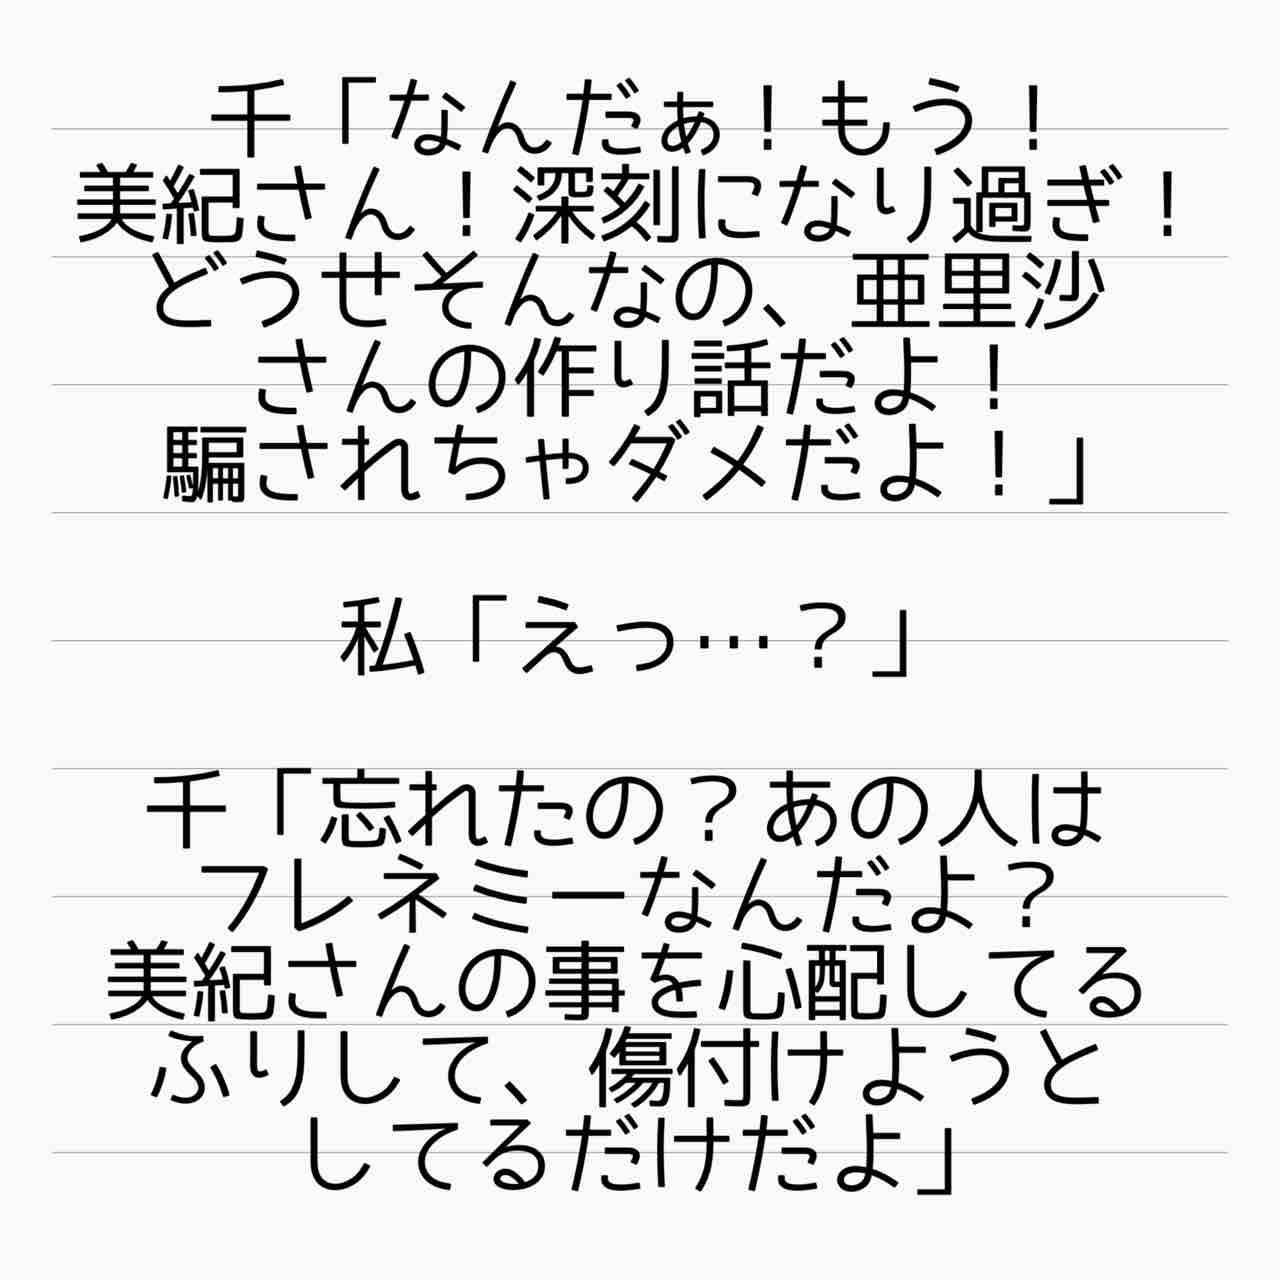 千「なんだぁ！もう！
美紀さん！深刻になり過ぎ！
どうせそんなの、亜里沙
さんの作り話だよ！
騙されちゃダメだよ！」
私「えっ…？」
千「忘れたの？あの人は
フレネミーなんだよ？
美紀さんの事を心配してる
ふりして、傷付けようと
してるだけだよ」